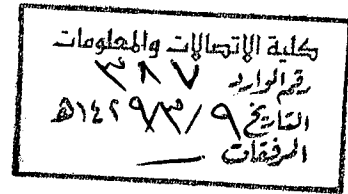 كلية الاتصالات والمعلومات
رقم الوارد ٣٨٧
التاريخ ٩/٣/١٤٢٩هـ
المرفقات —